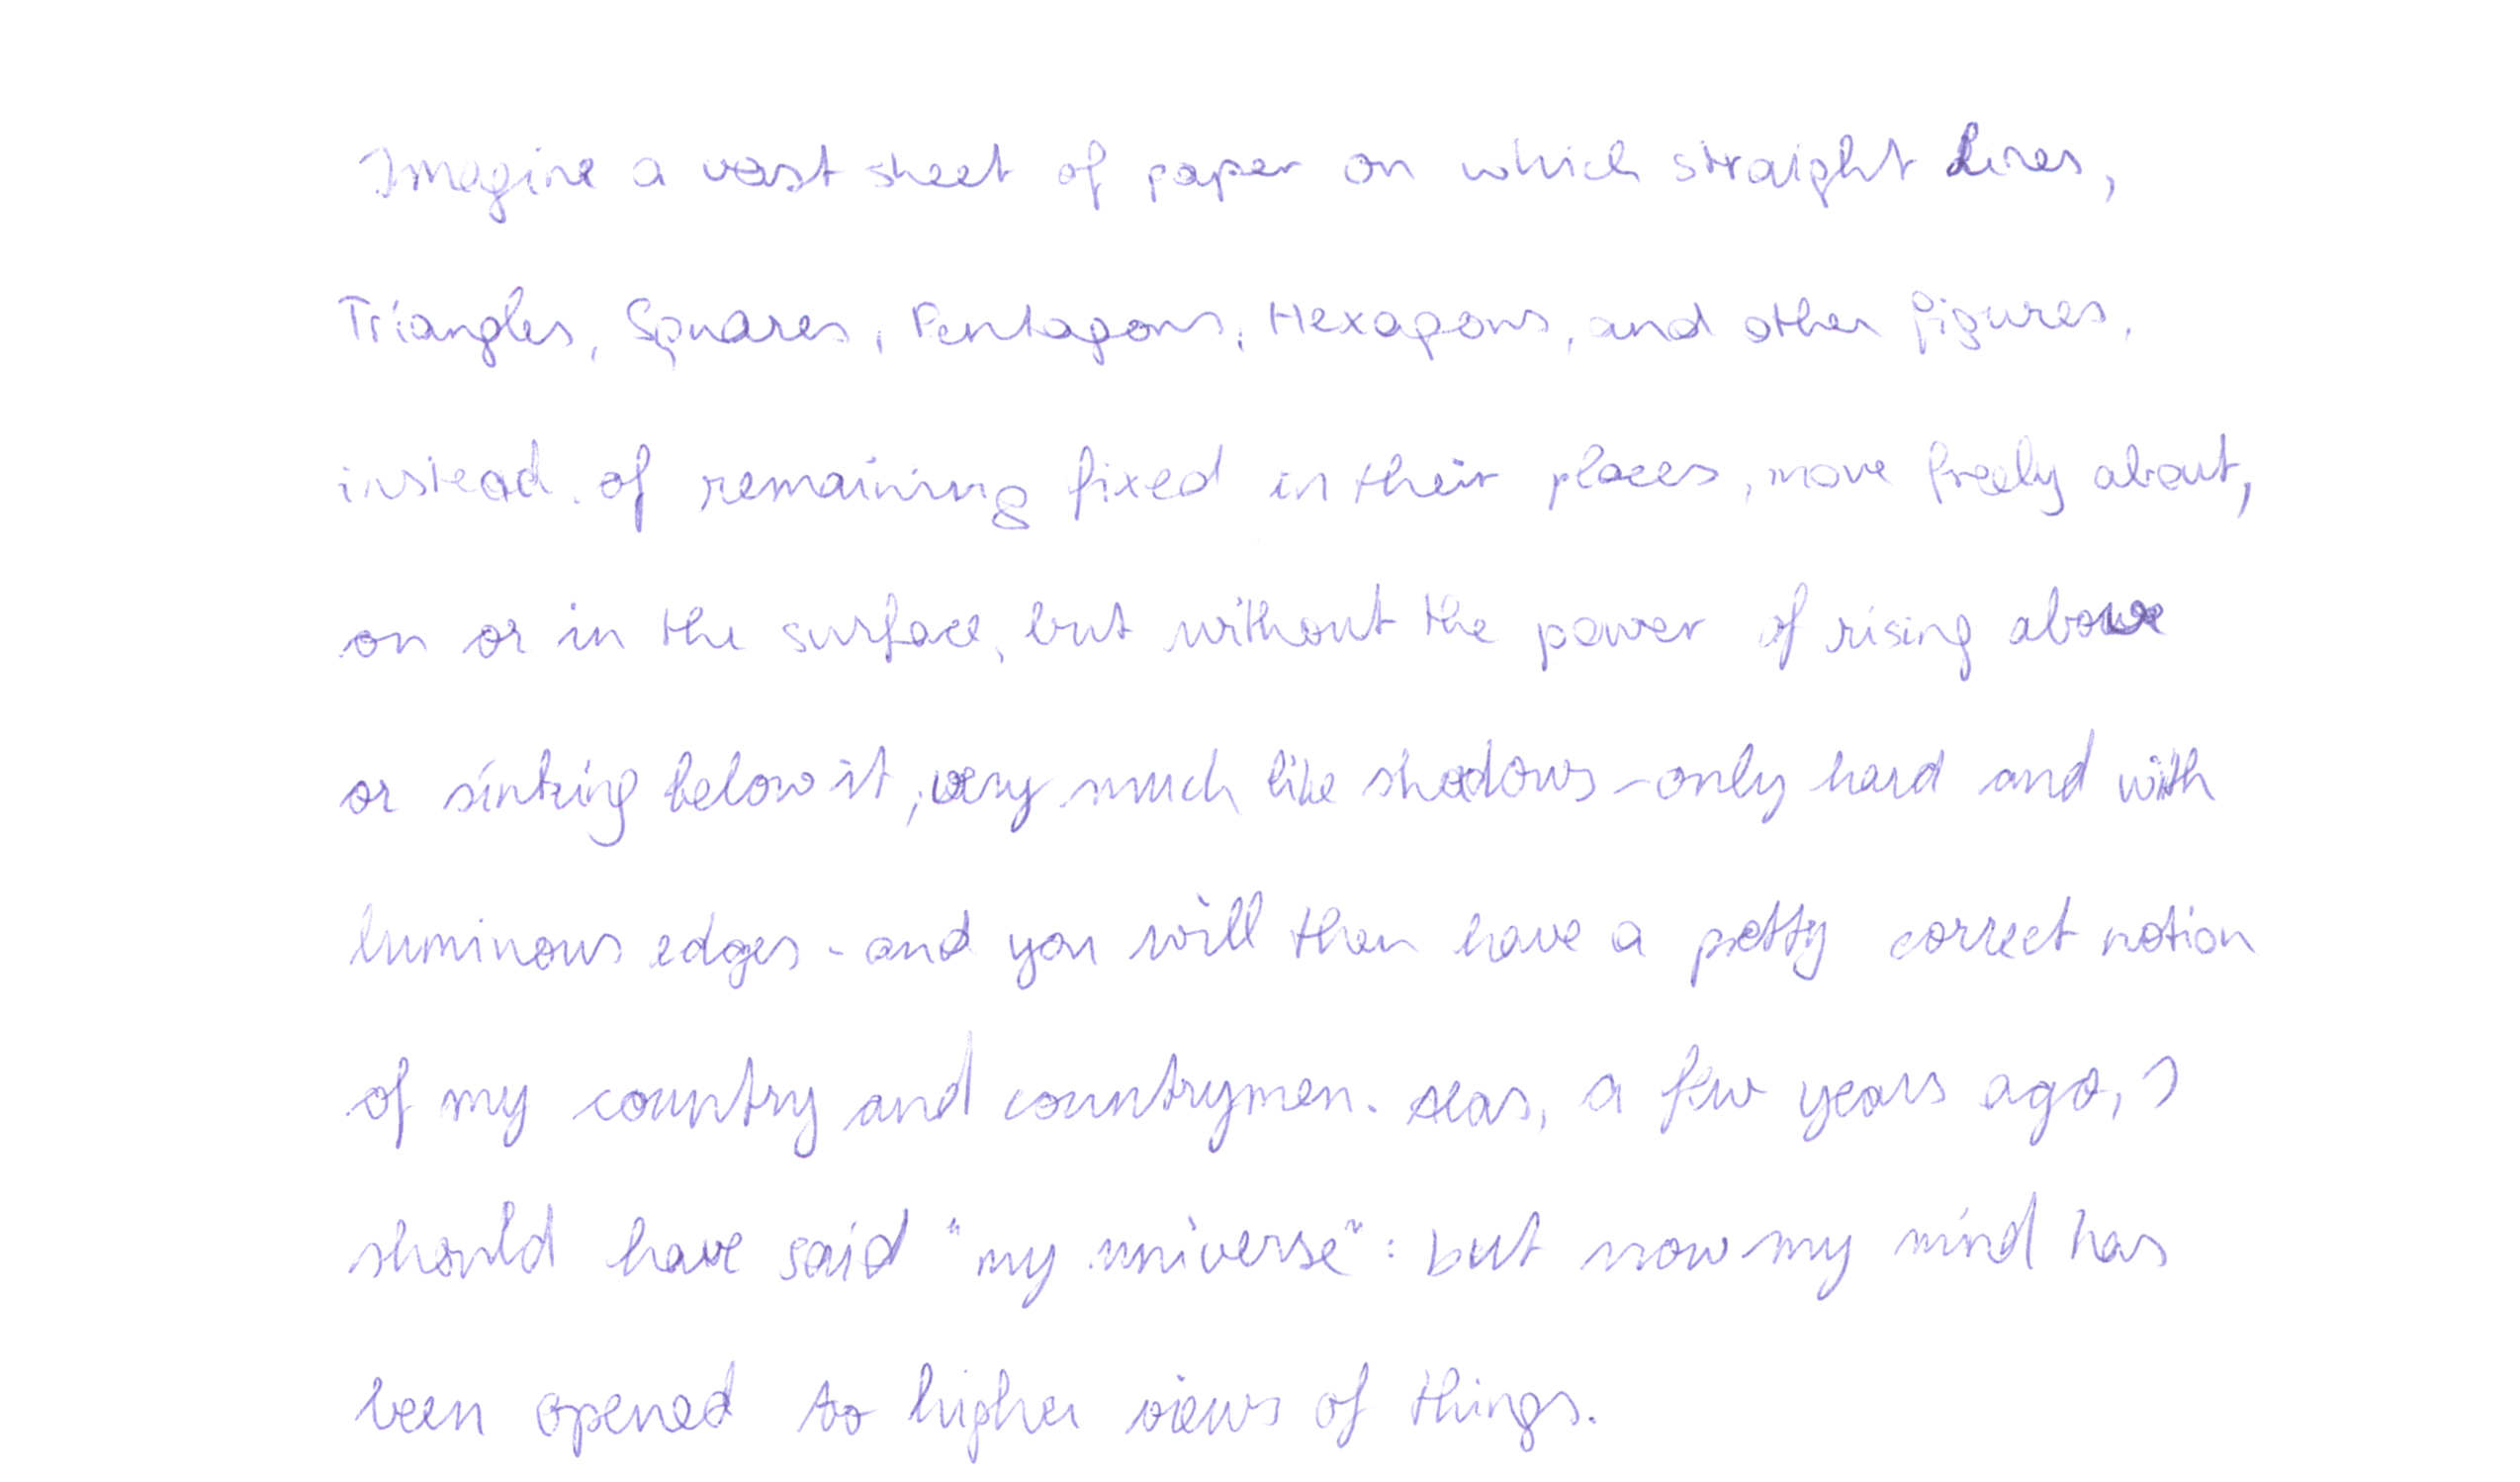 Imagine a vast sheet of paper on which straight lines,
Triangles, Squares, Pentagons, Hexagons, and other figures,
instead of remaining fixed in their places, move freely about,
on or in the surface, but without the power of rising above
or sinking below it, very much like shadows - only hard and with
luminous edges - and you will then have a pretty correct notion
of my country and countrymen. Alas, a few years ago, I
should have said "my universe": but now my mind has
been opened to higher views of things.